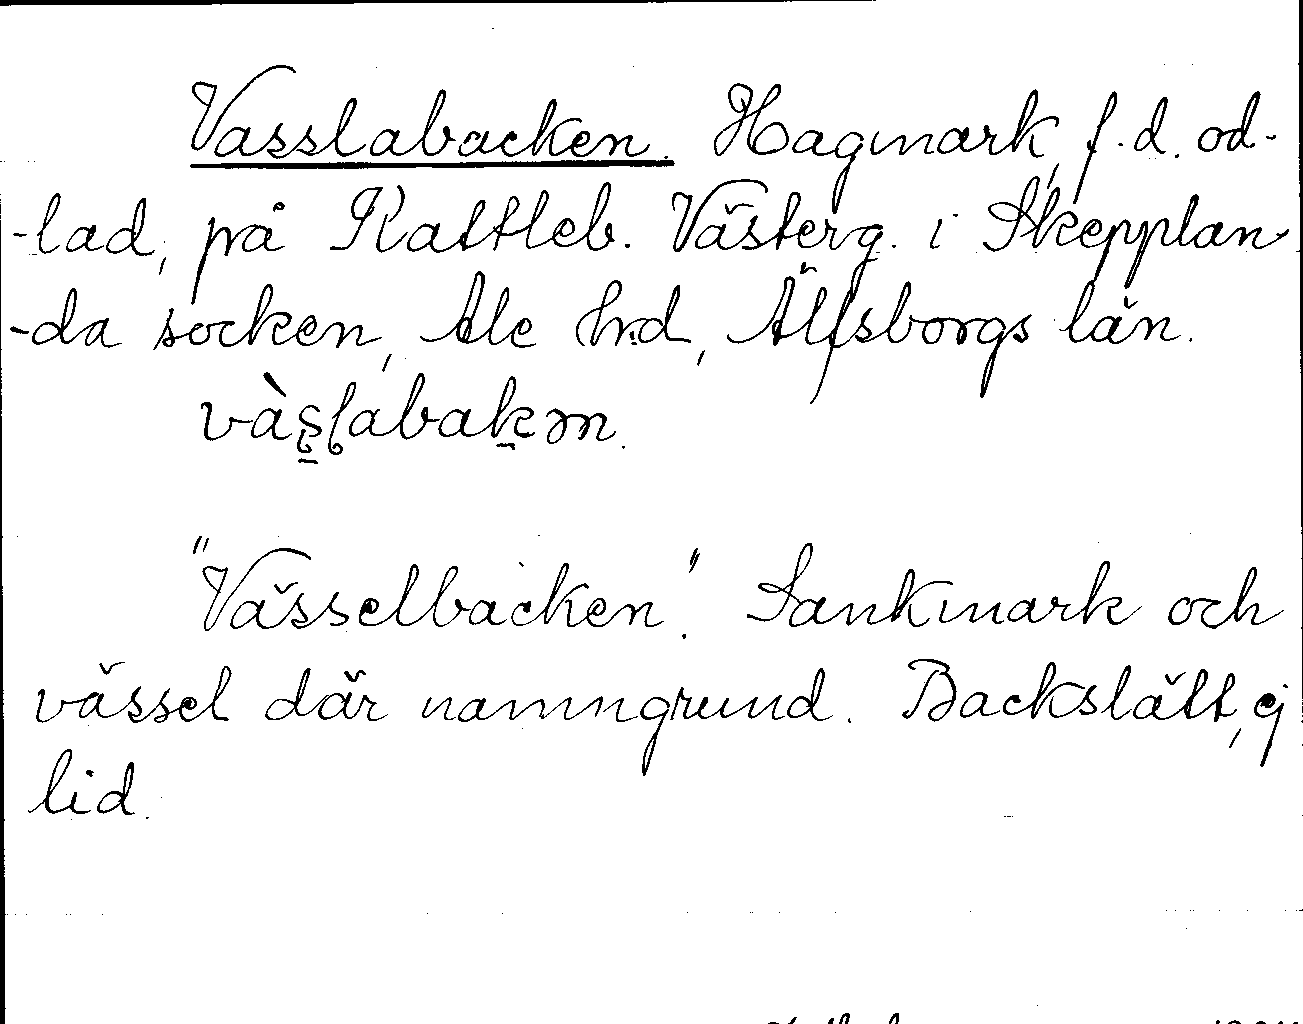 Vasslabacken. Hagmark, f.d. od-
-lad, på Kattleb. Västerg. i Skepplan-
-da socken, Ale hrd, Älfsborgs län.
"Vässelbacken." Sankmark och
vässel där namngrund. Backslätt, ej
lid.